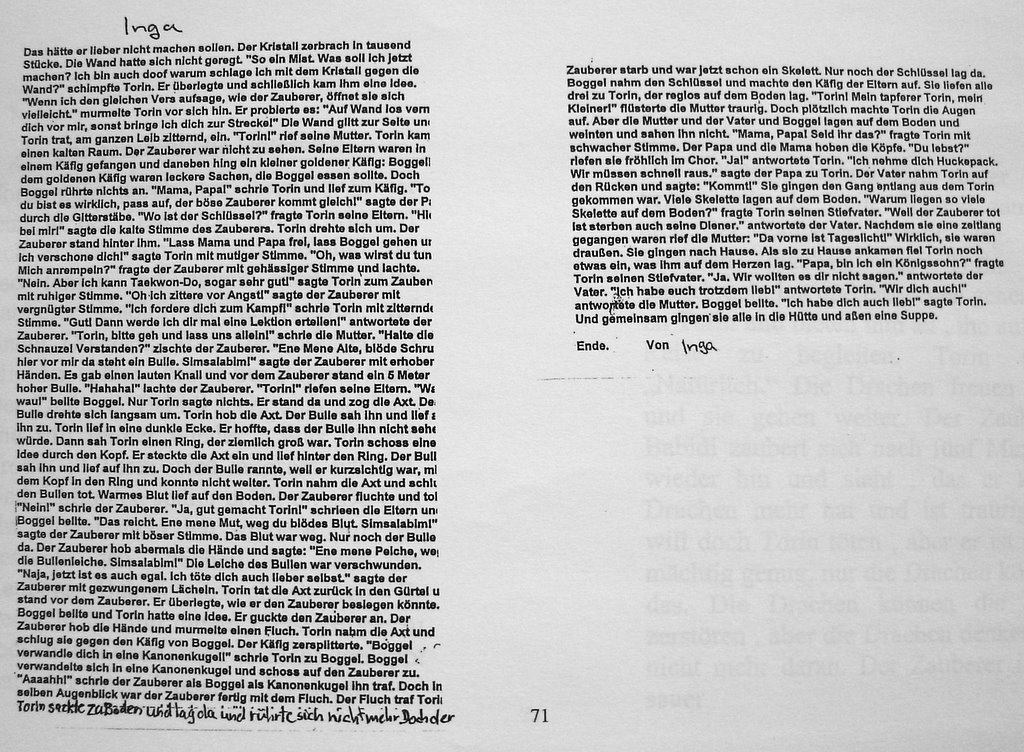 Inga
Das hätte er lieber nicht machen sollen. Der Kristall zerbrach in tausend
Stücke. Die Wand hatte sich nicht geregt. "So ein Mist. Was soll ich jetzt
machen? Ich bin auch doof warum schlage ich mit dem Kristall gegen die
Wand?" schimpfte Torin. Er überlegte und schließlich kam ihm eine Idee.
"Wenn ich den gleichen Vers aufsage, wie der Zauberer, öffnet sie sich
vielleicht." murmelte Torin vor sich hin. Er probierte es: "Auf Wand los vern
dich vor mir, sonst bringe ich dich zur Strecke!" Die Wand glitt zur Seite und
Torin trat, am ganzen Leib zitternd, ein. "Torin!" rief seine Mutter. Torin kam
einen kalten Raum. Der Zauberer war nicht zu sehen. Seine Eltern waren in
einem Käfig gefangen und daneben hing ein kleiner goldener Käfig: Boggel!
dem goldenen Käfig waren leckere Sachen, die Boggel essen sollte. Doch
Boggel rührte nichts an. "Mama, Papa!" schrie Torin und lief zum Käfig. "To
du bist es wirklich, pass auf, der böse Zauberer kommt gleich!" sagte der Pa
durch die Gitterstäbe. "Wo ist der Schlüssel?" fragte Torin seine Eltern. "Hi
bei mir!" sagte die kalte Stimme des Zauberers. Torin drehte sich um. Der
Zauberer stand hinter ihm. "Lass Mama und Papa frei, lass Boggel gehen ur
ich verschone dich!" sagte Torin mit mutiger Stimme. "Oh, was wirst du tun
Mich anrempeln?" fragte der Zauberer mit gehässiger Stimme und lachte.
"Nein. Aber ich kann Taekwon-Do, sogar sehr gut!" sagte Torin zum Zauber
mit ruhiger Stimme. "Oh ich zittere vor Angst!" sagte der Zauberer mit
vergnügter Stimme. "Ich fordere dich zum Kampf!" schrie Torin mit zitternde
Stimme. "Gut! Dann werde ich dir mal eine Lektion erteilen!" antwortete der
Zauberer. "Torin, bitte geh und lass uns allein!" schrie die Mutter. "Halte die
Schnauze! Verstanden?" zischte der Zauberer. "Ene Mene Alte, blöde Schru
hier vor mir da steht ein Bulle. Simsalabim!" sagte der Zauberer mit erhober
Händen. Es gab einen lauten Knall und vor dem Zauberer stand ein 5 Meter
hoher Bulle. "Hahaha!" lachte der Zauberer. "Torin!" riefen seine Eltern. "Wa
wau!" bellte Boggel. Nur Torin sagte nichts. Er stand da und zog die Axt. De
Bulle drehte sich langsam um. Torin hob die Axt. Der Bulle sah ihn und lief a
ihn zu. Torin lief in eine dunkle Ecke. Er hoffte, dass der Bulle ihn nicht sehe
würde. Dann sah Torin einen Ring, der ziemlich groß war. Torin schoss eine
Idee durch den Kopf. Er steckte die Axt ein und lief hinter den Ring. Der Bull
sah ihn und lief auf ihn zu. Doch der Bulle rannte, weil er kurzsichtig war, mi
dem Kopf in den Ring und konnte nicht weiter. Torin nahm die Axt und schlu
den Bullen tot. Warmes Blut lief auf den Boden. Der Zauberer fluchte und tol
"Nein!" schrie der Zauberer. "Ja, gut gemacht Torin!" schrieen die Eltern und
Boggel bellte. "Das reicht. Ene mene Mut, weg du blödes Blut. Simsalabim!"
sagte der Zauberer mit böser Stimme. Das Blut war weg. Nur noch der Bulle
da. Der Zauberer hob abermals die Hände und sagte: "Ene mene Peiche, we
die Bullenleiche. Simsalabim!" Die Leiche des Bullen war verschwunden.
"Naja, jetzt ist es auch egal. Ich töte dich auch lieber selbst." sagte der
Zauberer mit gezwungenem Lächeln. Torin tat die Axt zurück in den Gürtel u
stand vor dem Zauberer. Er überlegte, wie er den Zauberer besiegen könnte.
Boggel bellte und Torin hatte eine Idee. Er guckte den Zauberer an. Der
Zauberer hob die Hände und murmelte einen Fluch. Torin nahm die Axt und
schlug sie gegen den Käfig von Boggel. Der Käfig zersplitterte. "Boggel
verwandle dich in eine Kanonenkugel!" schrie Torin zu Boggel. Boggel
verwandelte sich in eine Kanonenkugel und schoss auf den Zauberer zu.
"Aaaahh!" schrie der Zauberer als Boggel als Kanonenkugel ihn traf. Doch in
selben Augenblick war der Zauberer fertig mit dem Fluch. Der Fluch traf Tori
Torin sackte zu Boden und lag da und rührte sich nicht mehr Doch der
Zauberer starb und war jetzt schon ein Skelett. Nur noch der Schlüssel lag da.
Boggel nahm den Schlüssel und machte den Käfig der Eltern auf. Sie liefen alle
drei zu Torin, der reglos auf dem Boden lag. "Torin! Mein tapferer Torin, mein
Kleiner!" flüsterte die Mutter traurig. Doch plötzlich machte Torin die Augen
auf. Aber die Mutter und der Vater und Boggel lagen auf dem Boden und
weinten und sahen ihn nicht. "Mama, Papa! Seid ihr das?" fragte Torin mit
schwacher Stimme. Der Papa und die Mama hoben die Köpfe. "Du lebst?"
riefen sie fröhlich im Chor. "Ja!" antwortete Torin. "Ich nehme dich Huckepack.
Wir müssen schnell raus." sagte der Papa zu Torin. Der Vater nahm Torin auf
den Rücken und sagte: "Kommt!" Sie gingen den Gang entlang aus dem Torin
gekommen war. Viele Skelette lagen auf dem Boden. "Warum liegen so viele
Skelette auf dem Boden?" fragte Torin seinen Stiefvater. "Weil der Zauberer tot
ist sterben auch seine Diener." antwortete der Vater. Nachdem sie eine zeitlang
gegangen waren rief die Mutter: "Da vorne ist Tageslicht!" Wirklich, sie waren
draußen. Sie gingen nach Hause. Als sie zu Hause ankamen fiel Torin noch
etwas ein, was ihm auf dem Herzen lag. "Papa, bin ich ein Königssohn?" fragte
Torin seinen Stiefvater. "Ja. Wir wollten es dir nicht sagen." antwortete der
Vater. "Ich habe euch trotzdem lieb!" antwortete Torin. "Wir dich auch!"
antwortete die Mutter. Boggel bellte. "Ich habe dich auch lieb!" sagte Torin.
Und gemeinsam gingen sie alle in die Hütte und aßen eine Suppe.
Ende. Von Inga
71